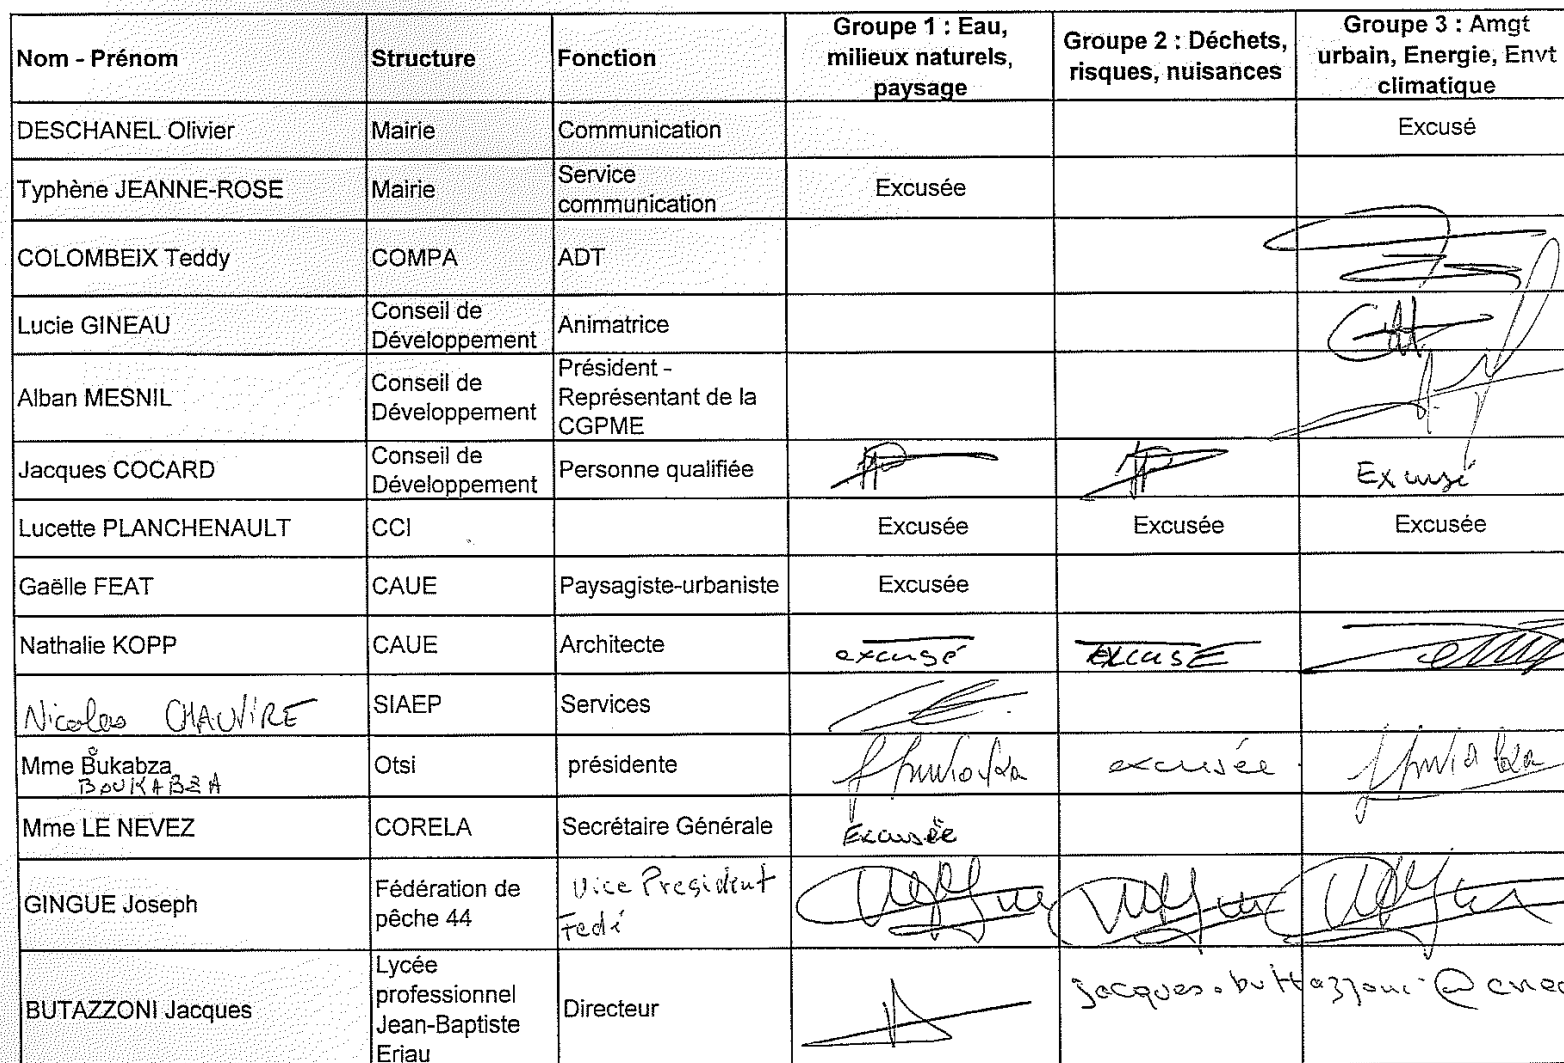 Nom - Prénom Structure Fonction Groupe 1 : Eau, milieux naturels, paysage Groupe 2 : Déchets, risques, nuisances Groupe 3 : Amgt urbain, Energie, Envt climatique
DESCHANEL Olivier Mairie Communication Excusé
Typhène JEANNE-ROSE Mairie Service communication Excusée
COLOMBEIX Teddy COMPA ADT
Lucie GINEAU Conseil de Développement Animatrice
Alban MESNIL Conseil de Développement Président - Représentant de la CGPME
Jacques COCARD Conseil de Développement Personne qualifiée Excusé
Lucette PLANCHENAULT CCI Excusée Excusée Excusée
Gaëlle FEAT CAUE Paysagiste-urbaniste Excusée
Nathalie KOPP CAUE Architecte excusé EXCUSÉ
Nicolas CHAUVIRE SIAEP Services
Mme Bukabza Otsi présidente excusée
BOUKABZA
Mme LE NEVEZ CORELA Secrétaire Générale Excusée
GINGUE Joseph Fédération de pêche 44 Vice President Fedé
BUTAZZONI Jacques Lycée professionnel Jean-Baptiste Eriau Directeur jacques.buttazzoni@